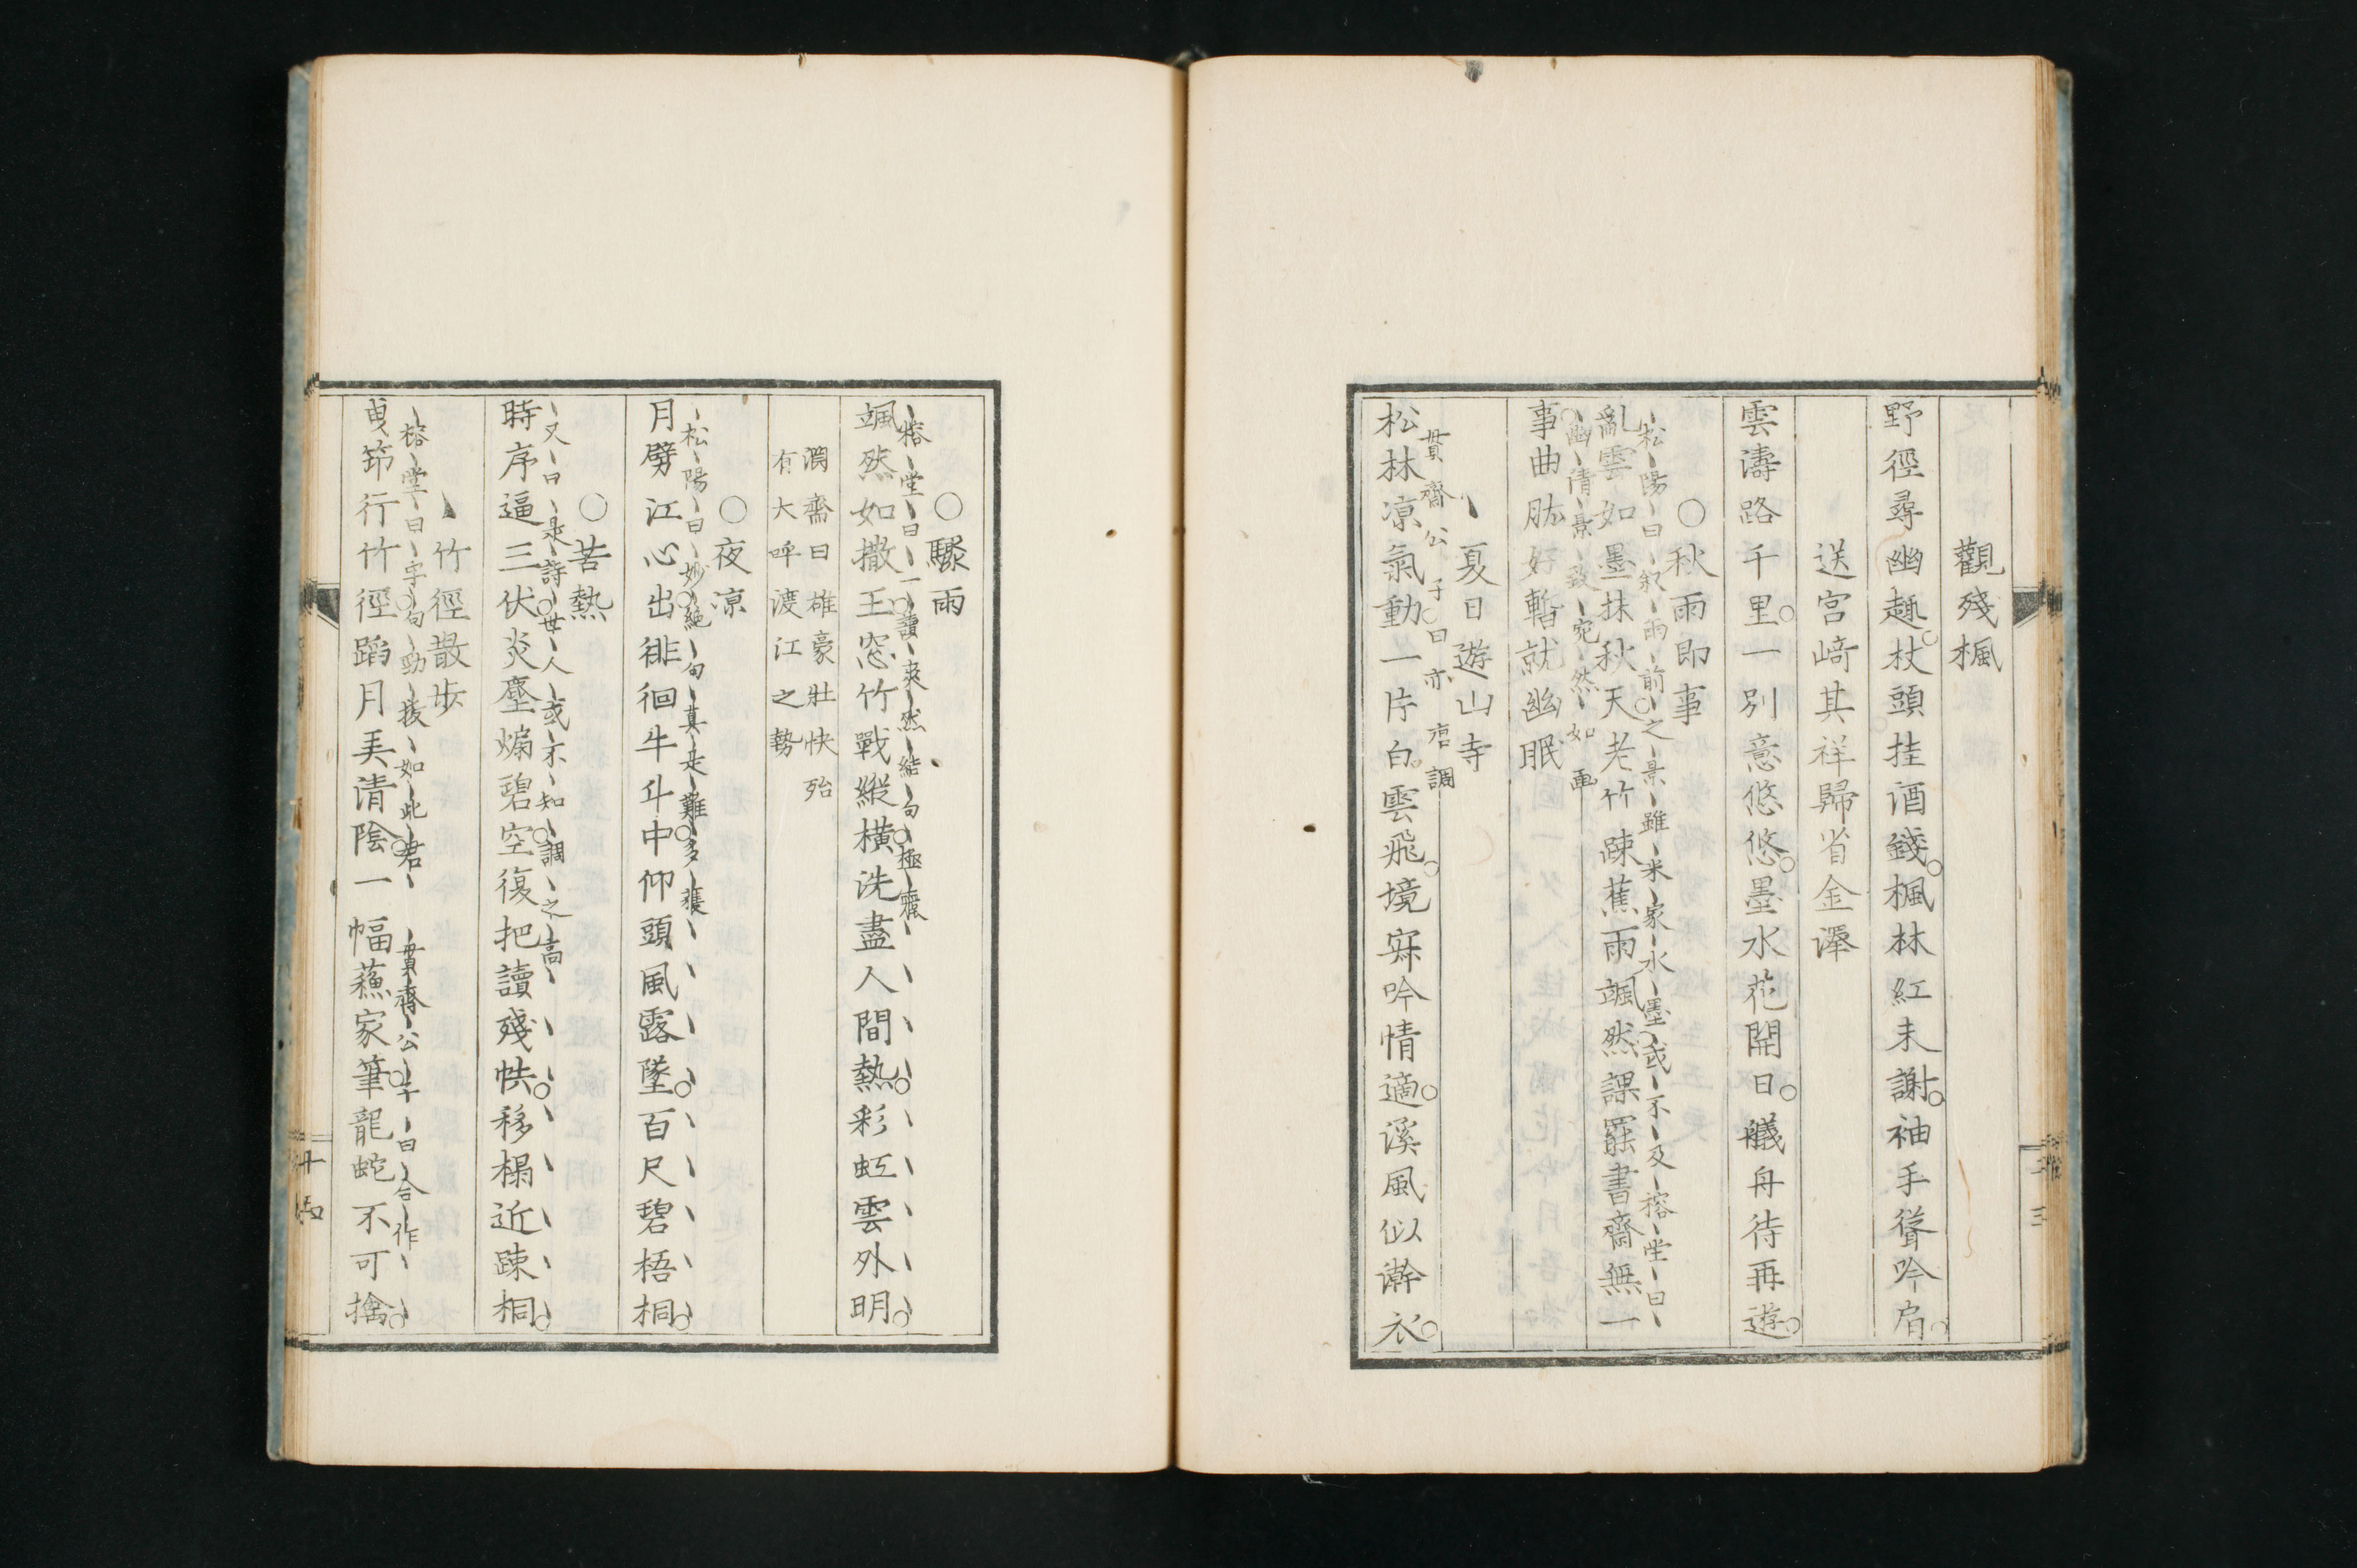 觀殘楓
野徑尋幽趣杖頭挂酒錢楓林紅未謝袖手聳吟肩
送宮﨑其祥歸省金澤
雲濤路千里一別意悠悠墨水花開日艤舟待再遊
○秋雨即事
松陽曰叙雨前之景雖米家水墨或不及榕堂曰
亂雲如墨抹秋天老竹疎蕉雨颯然課罷書齋無一
幽情景致宛然如畫
事曲肱好暫就幽眠
夏日遊山寺
貫齋公子曰亦唐調
松林凉氣動一片白雲飛境寐吟情適溪風似澣衣
三
○驟雨
榕堂曰一讀爽然結句極癡
颯然如撒王窓竹戰縱橫洗盡人間熱彩虹雲外明
澗齋曰雄豪壯快殆
有大呼渡江之勢
○夜凉
松陽曰妙絕句真是難多獲
月劈江心出徘徊牛斗中仰頭風露墜百尺碧梧桐
○苦熱
又曰是詩世人或不知調之高
時序逼三伏炎塵煽碧空復把讀殘帙移榻近疎桐
竹徑散歩
榕堂曰字句勁拔如此君 貫齋公子曰合作
曳筇行竹徑蹈月美清陰一幅蘓家筆龍蛇不可擒